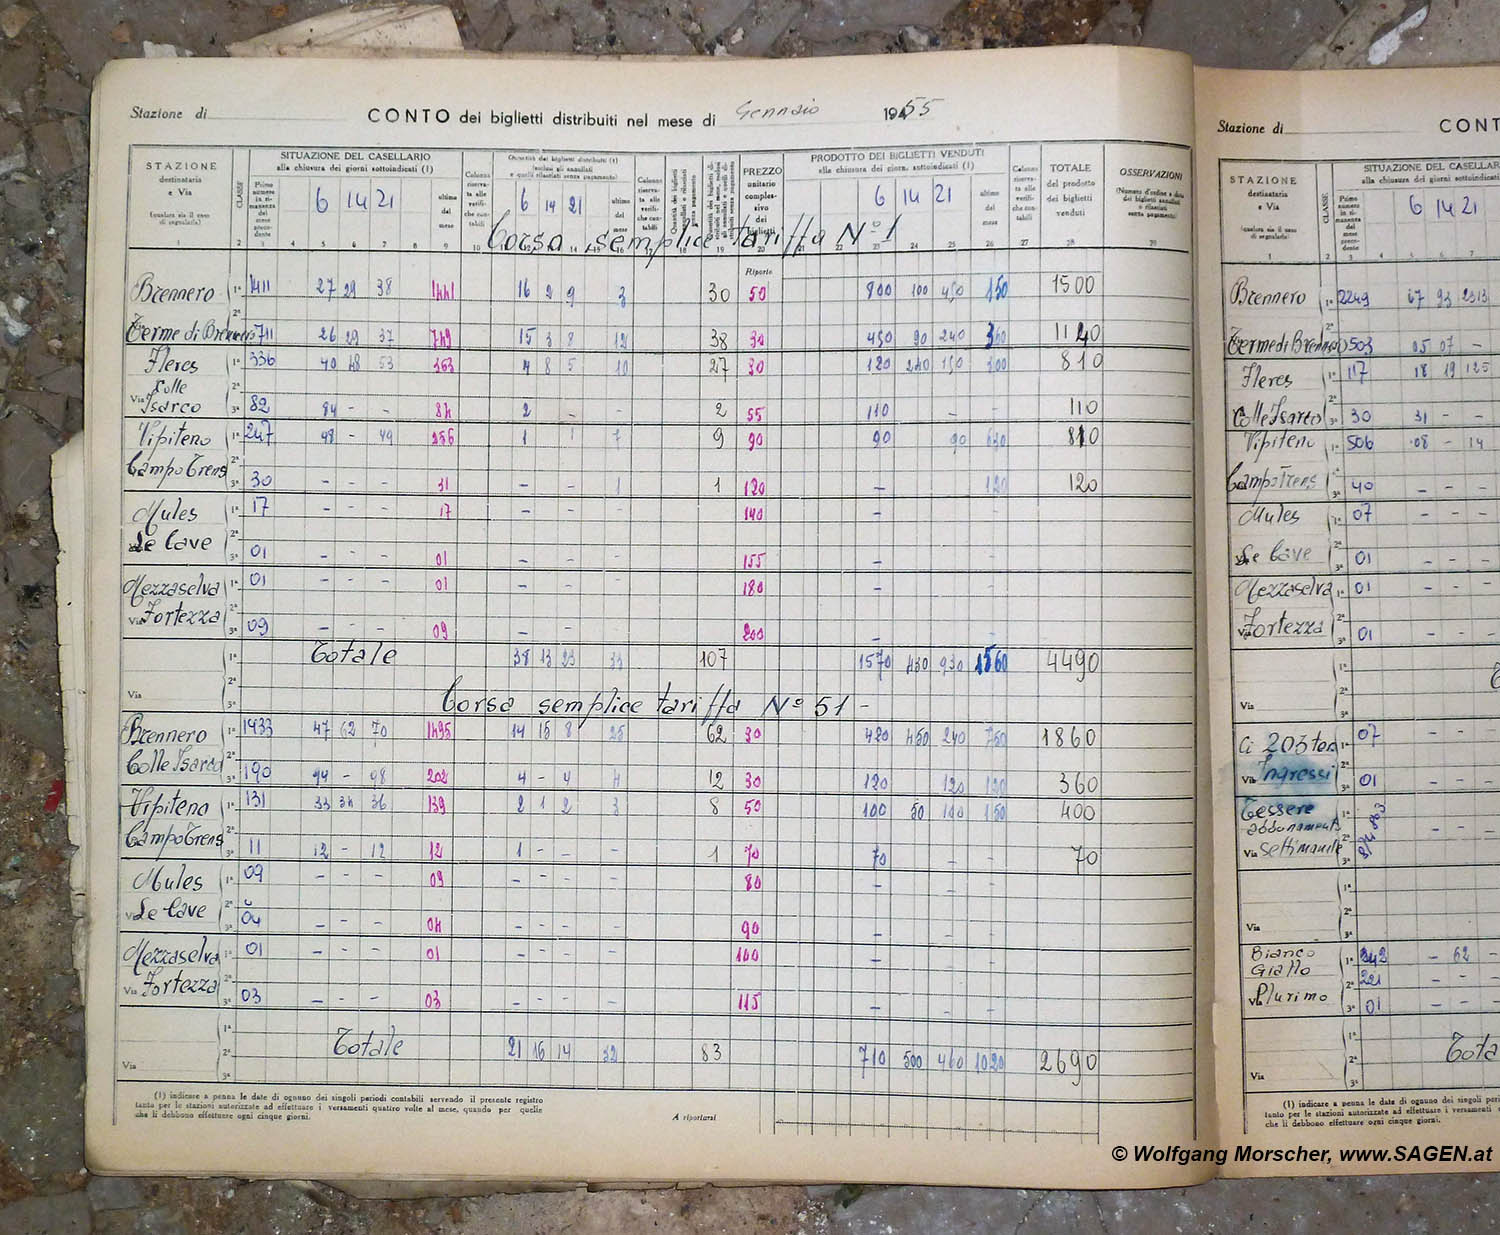 Stazione di
CONTO dei biglietti distribuiti nel mese di Gennaio 1955
STAZIONE destinataria e Via (qualora sia il caso di segnalarla)
CLASSE
SITUAZIONE DEL CASELLARIO
alla chiusura dei giorni sottoindicati (1)
Primo numero in rimanenza del mese precedente
6 14 21
ultimo del mese
Quantità dei biglietti distribuiti (1)
6 14 21
ultimo del mese
PREZZO unitario complessivo dei biglietti
PRODOTTO DEI BIGLIETTI VENDUTI
alla chiusura dei giorni sottoindicati (1)
6 14 21
ultimo del mese
TOTALE del prodotto dei biglietti venduti
OSSERVAZIONI
Corsa semplice tariffa Nº 1
Riporto
Brennero 1ª 1411 27 29 38 1441 16 2 9 3 30 50 800 100 450 150 1500
Terme di Brennero 711 26 29 37 749 15 3 8 12 38 30 450 90 240 360 1140
Fleres 1ª 336 40 48 53 363 4 8 5 10 27 30 120 240 150 300 810
Colle Isarco 3ª 82 84 - - 84 2 - - 2 55 110 - - 110
Vipiteno 1ª 247 48 - 49 256 1 1 7 9 90 90 90 630 810
Campo Trens 3ª 30 - - - 31 - - 1 1 120 - 120 120
Mules 1ª 17 - - - 17 - - - - 140 -
Le Cave 3ª 01 - - - 01 - - - - 155 -
Mezzaselva 1ª 01 - - - 01 - 180
Via Fortezza 3ª 09 - - - 09 - - 200 -
Totale 38 13 23 33 107 1570 430 930 1560 4490
Via
Corsa semplice tariffa Nº 51 -
Brennero 1ª 1433 47 62 70 1495 14 15 8 25 62 30 420 450 240 750 1860
Colle Isarco 190 94 - 98 202 4 - 4 4 12 30 120 120 120 360
Vipiteno 1ª 131 33 34 36 139 2 1 2 3 8 50 100 50 100 150 400
Campo Trens 3ª 11 12 - 12 12 1 - - - 1 70 70 - - 70
Mules 1ª 09 - - - 09 - - - - 80 - - -
Le Cave 04 - - - 04 - - - - 90 - - -
Mezzaselva 1ª 01 - - - 01 - - - - 100 - - -
Via Fortezza 3ª 03 - - 03 - - - - 115 - - -
Totale 21 16 14 32 83 710 500 460 1020 2690
Via
(1) indicare a penna le date di ognuno dei singoli periodi contabili servendo il presente registro
tanto per le stazioni autorizzate ad effettuare i versamenti quattro volte al mese, quando per quelle
che li debbono effettuare ogni cinque giorni.
A riportarsi
Stazione di
CONT
SITUAZIONE DEL CASELLA
alla chiusura dei giorni sottoindicati
STAZIONE destinataria e Via (qualora sia il caso di segnalarla)
CLASSE
Primo numero in rimanenza del mese precedente
6 14 21
Brennero 1ª 2249 67 93 2313
Terme di Brennero 503 05 07 -
Fleres 1ª 117 18 19 125
Colle Isarco 3ª 30 31 - -
Vipiteno 1ª 506 08 - 14
Campo Trens 3ª 40 - - -
Mules 1ª 07 - - -
Le Cave 3ª 01 - - -
Mezzaselva 1ª 01 - - -
Via Fortezza 3ª 01 - - -
Via
Ci 203 ter 1ª 07 - - -
Via Ingressi 3ª 01 - - -
Tessere
abbonamenti
Via settimanale
Via
Bianco 1ª 342 - 62 -
Giallo 2ª 221 - -
Via Plurimo 3ª 01 - - -
Tota
Via
(1) indicare a penna le date di ognuno dei singoli perio
tanto per le stazioni autorizzate ad effettuare i versamenti
che li debbono effettuare ogni cinque giorni.
© Wolfgang Morscher, www.SAGEN.at